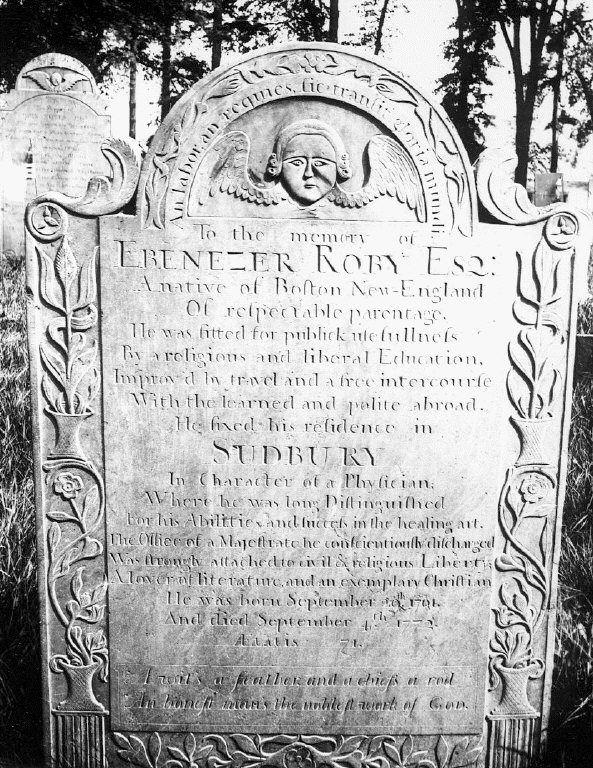 An labor an requies, sic transit gloria mundi.
To the memory of
EBENEZER ROBY ESQ:
A native of Boston New-England
Of reſpectable parentage.
He was fitted for publick uſefullneſs
By a religious and liberal Education,
Improv'd by travel and a free intercourse
With the learned and polite abroad.
He fixed his reſidence in
SUDBURY
In Character of a Phyſician,
Where he was long Diſtinguiſhed
For his Abilities and ſucceſs in the healing art.
The Office of a Majeſtrate he conſcientiouſly diſcharged
Was ſtrongly attached to civil & religious Liberty
A lover of literature, and an exemplary Chriſtian
He was born September 20th. 1701.
And died September 4th. 1772.
Ætatis 71.
A wit's a feather and a chief's a rod
An honeſt man's the nobleſt work of GOD.